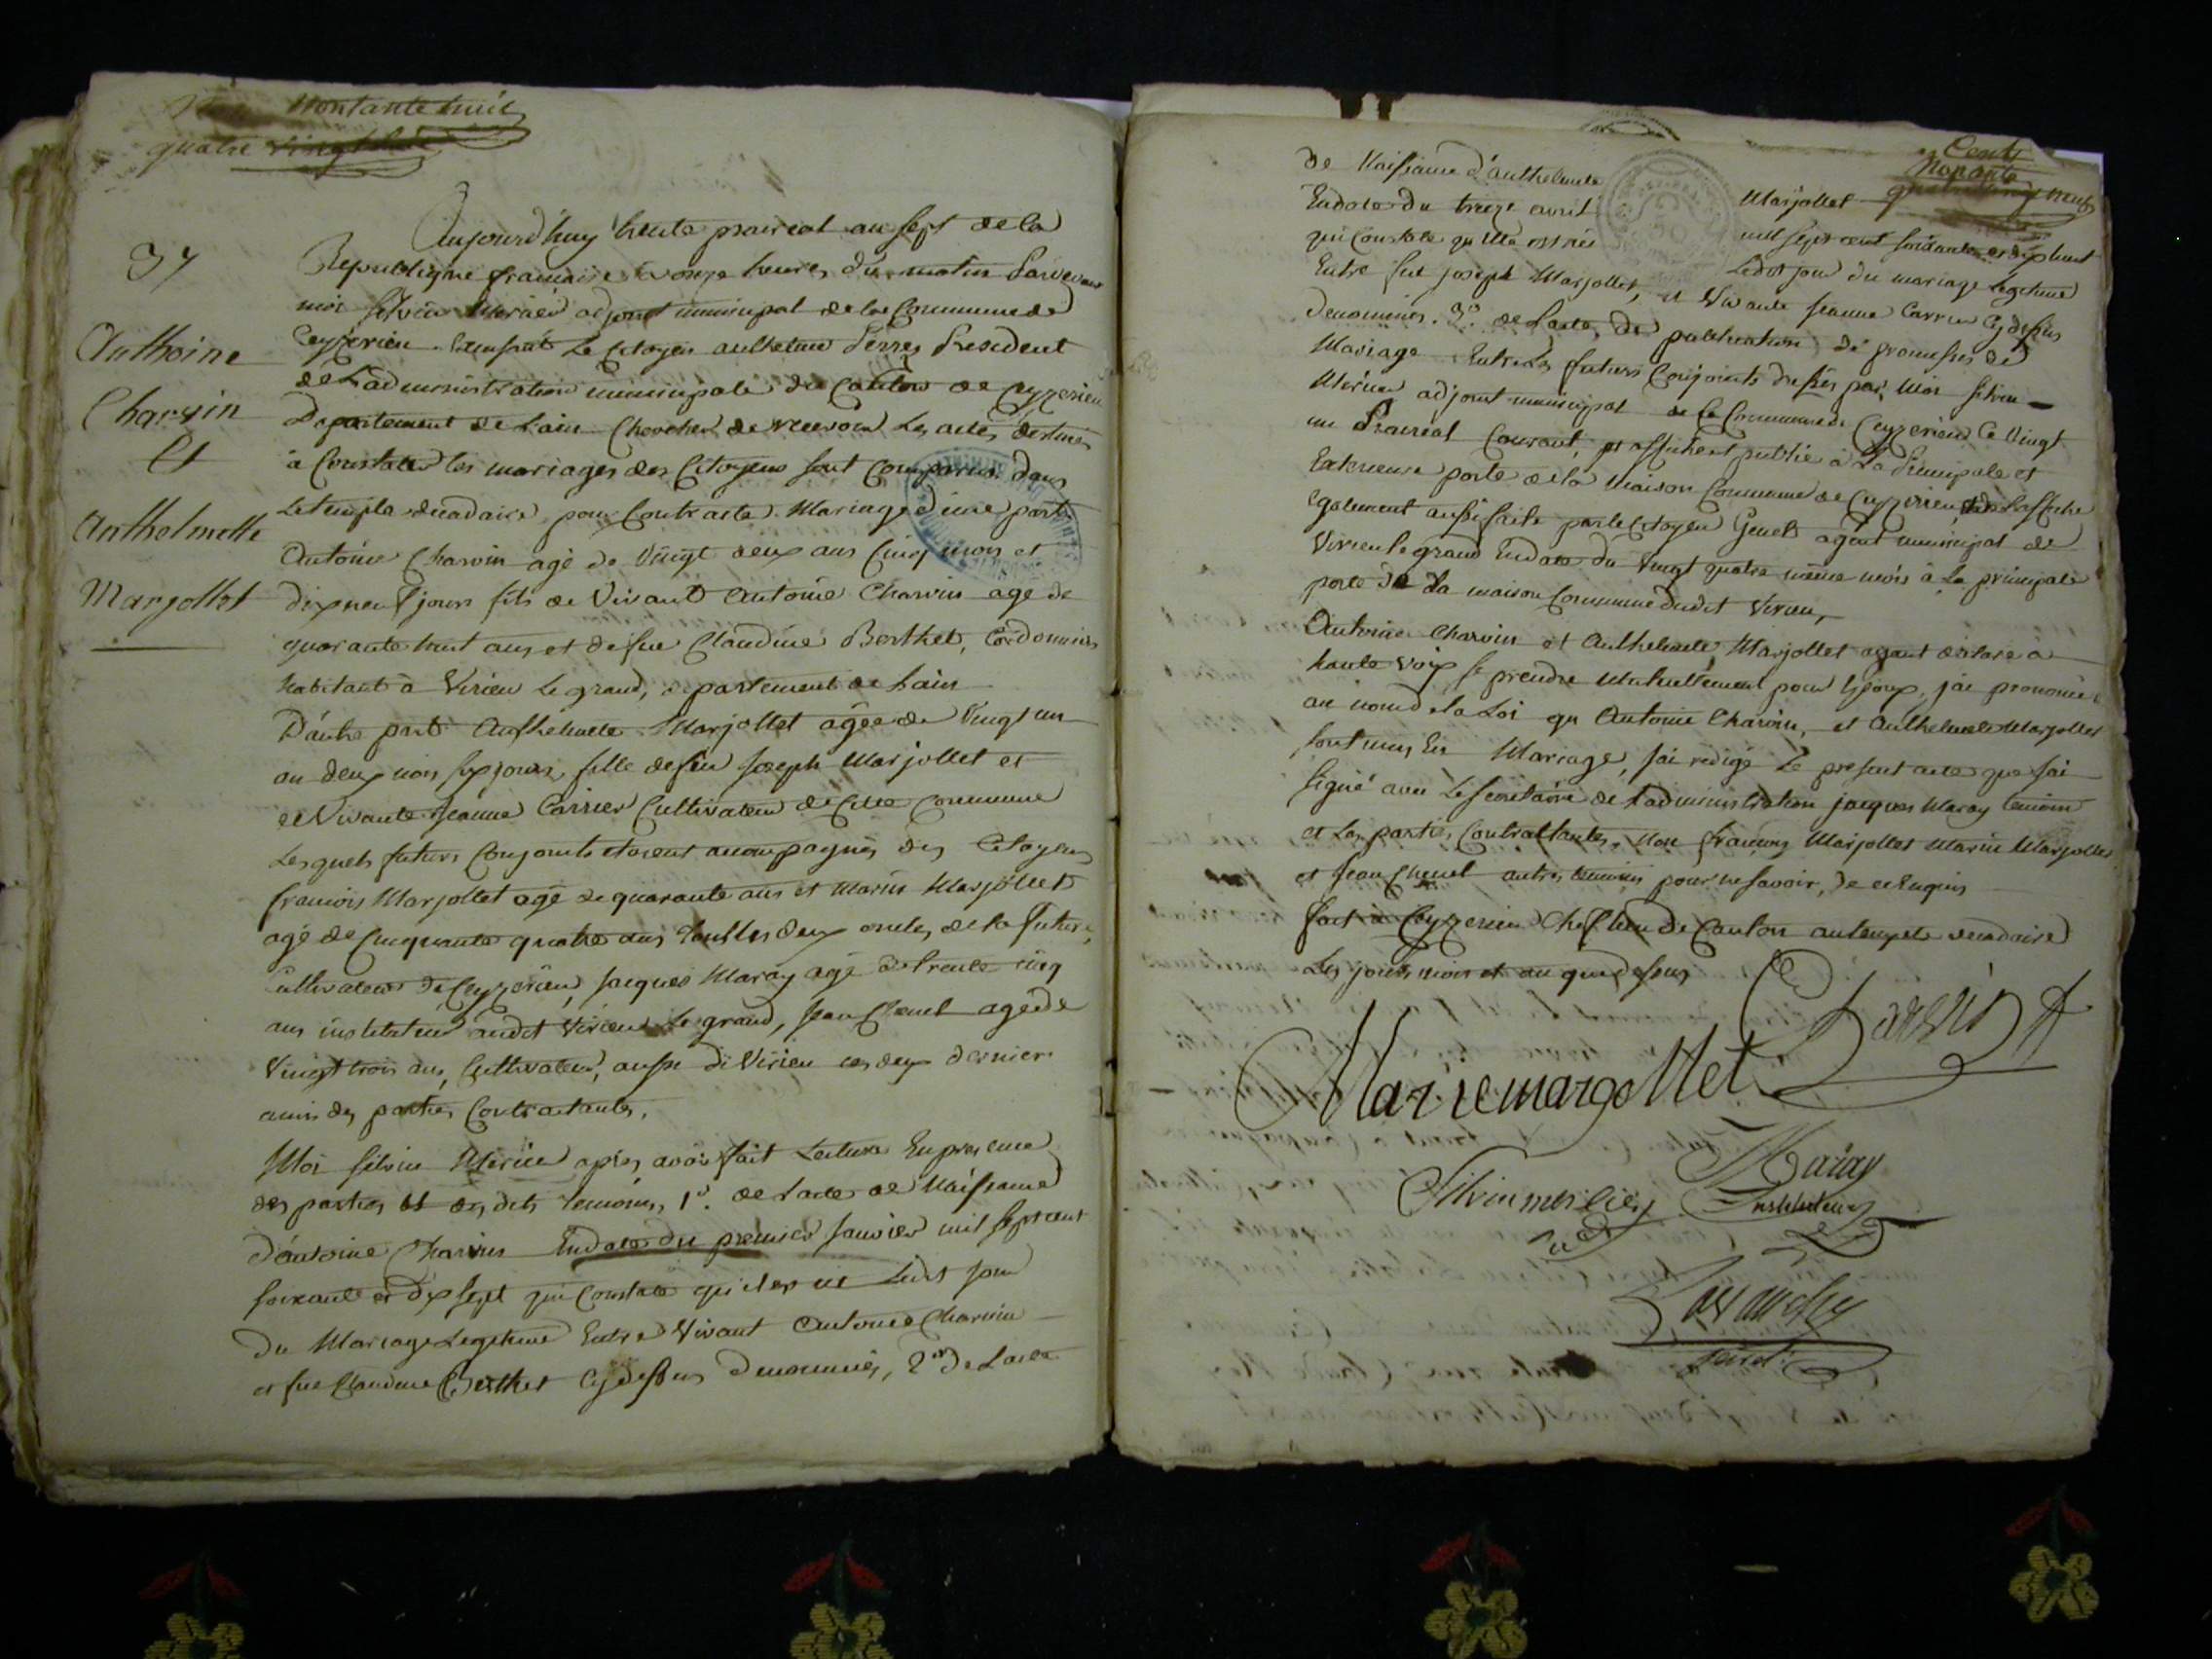 Nontante huit
quatre vingt huit
37
Anthoine
Charvin
Et
Anthelmette
Marjollet
Aujourd'huy trente prairial an sept de la
Republique francaise à onze heures du matin Pardevant
moi Silvin Mercier adjoint municipal de la Commune de
Ceyzerieu Exensant le Citoyen anthelme President
de L'administration municipale du Canton de Ceyzerieu
Departement de L'ain de recevoir Les actes destinés
à Constater les mariages des Citoyens sont Comparus dans
Le temple decadaire, pour Contracter Mariage d'une part
Antoine Charvin agé de Vingt deux ans Cinq mois et
dix neuf jours fils de Vivant Antoine Charvin agé de
quarante huit ans et de fue Claudine Berthet, Cordonnier
habitant à Virieu Le grand, departement de Lain
D'autre part Anthelmette Marjollet agée de Vingt un
an deux mois six jours, fille de feu Joseph Marjollet et
de Vivante Jeanne Carrier Cultivateur de Cette Commune
Lesquels futurs Conjoints etoient accompagnés des Citoyens
francois Marjollet agé de quarante ans et Marin Marjollet
agé de Cinquante quatre ans tous les deux oncles de la future,
Cultivateurs de Ceyzerieu, Jacques Maray agé de trente cinq
ans instituteur audit Virieu Le grand, Jean agé de
Vingt trois ans, Cultivateur, aussi de Virieu ces deux derniers
amis des parties Contractantes.
Moi Silvin Mercier après avoir fait Lecture En presence
des parties et des dits temoins, 1° de Lacte de Naissance
d'antoine Charvin En date du premier Janvier mil sept cent
soixante et dix sept qui Constate qu'il est né Ledit jour
du Mariage Legitime Entre Vivant Antoine Charvin
et fue Claudine Berthet Cy dessus denommés, 2° de Lacte
Cent
Nonante
quatre vingt neuf
de Naissance d'anthelmette Marjollet
En date du treize avril mil sept cent soixante et dix huit
qui Constate qu'Elle est née Ledit jour du mariage Legitime
Entre feu Joseph Marjollet, et Vivante Jeanne Carrier Cy dessus
denommés. 3° de Lacte de publication de promesses de
Mariage Entre Les futurs Conjoints dressés par Moi Silvin
Mercier adjoint municipal de la Commune de Ceyzerieu Ce Vingt
un Prairial Courant, et affiché et publié à La Principale et
Exterieure porte de la Maison Commune de Ceyzerieu, Laffiche
Egalement aussi faite par le Citoyen Genet agent municipal de
Virieu le grand En date du Vingt quatre même mois à La principale
porte de La maison Commune dudit Virieu,
Antoine Charvin et Anthelmette Marjollet ayant declaré à
haute voix se prendre Mutuellement pour Epoux, j'ai prononcé
au nom de la Loi qu'Antoine Charvin, et Anthelmette Marjollet
sont unis En Mariage, J'ai redigé Le present acte que J'ai
signé avec Le secretaire de L'administration jacques Maray temoin
et Les parties Contractantes, Non francois Marjollet Marin Marjollet
et Jean autres temoins pour ne savoir, de ce Enquis
fait à Ceyzerieu Chef Lieu de Canton au temple decadaire
Les jours mois et an que dessus
Charvin
Marjemargollet
Silvin mercier
Maray
Instituteur